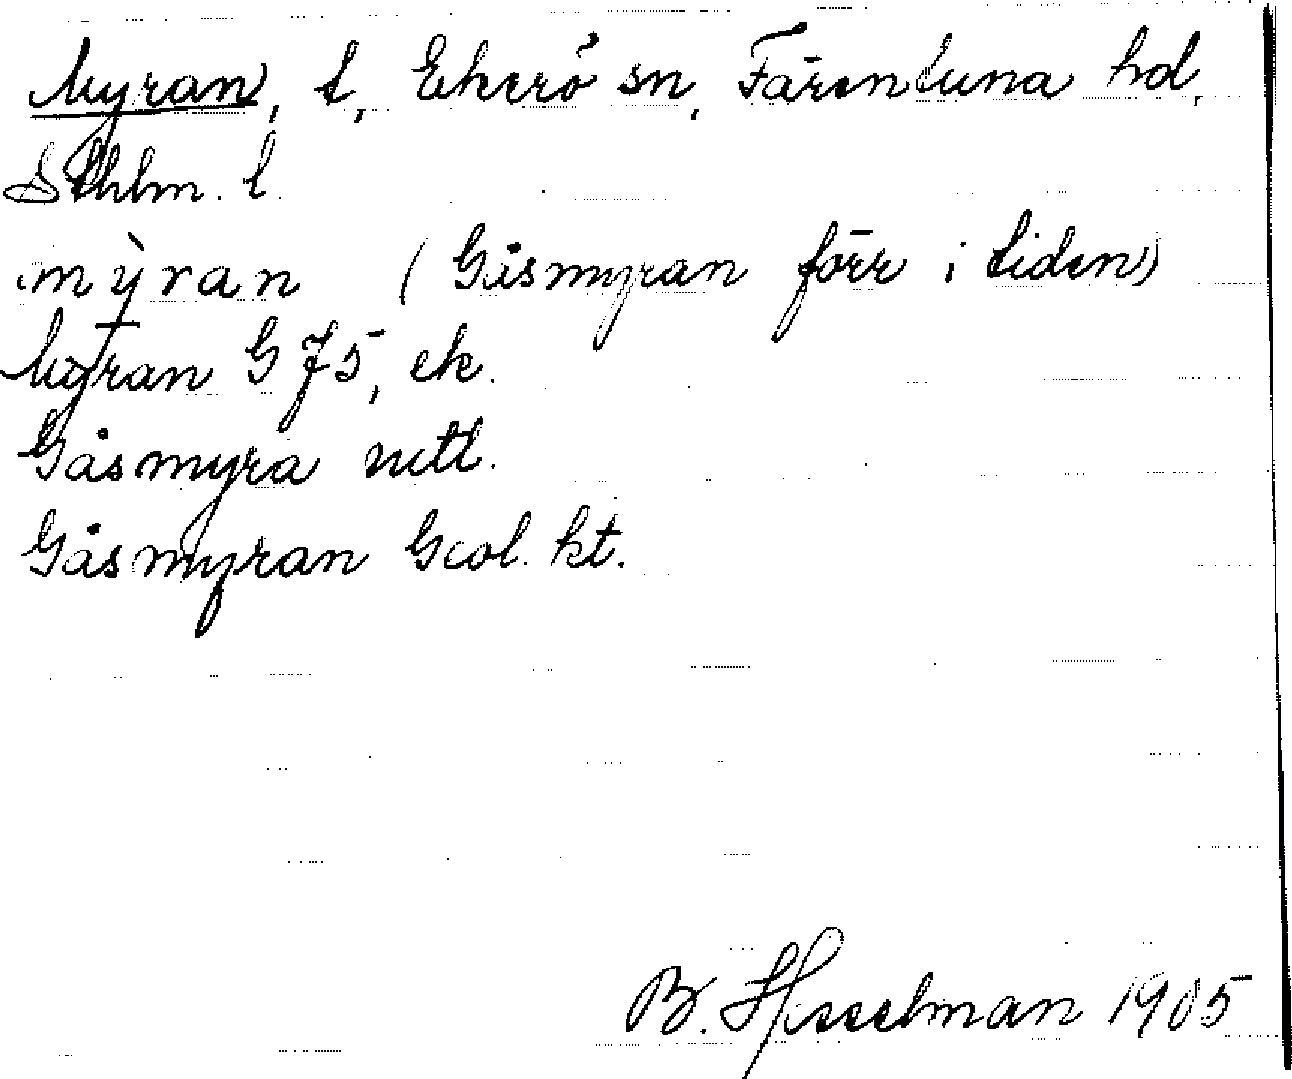 Myran, t, Ekerö sn, Färentuna hd,
Sthlm. l.
mỳran (Gåsmyran förr i tiden)
Myran GJ5, ek.
Gåsmyra mtl.
Gåsmyran Geol. kt.
B. Hesselman 1905